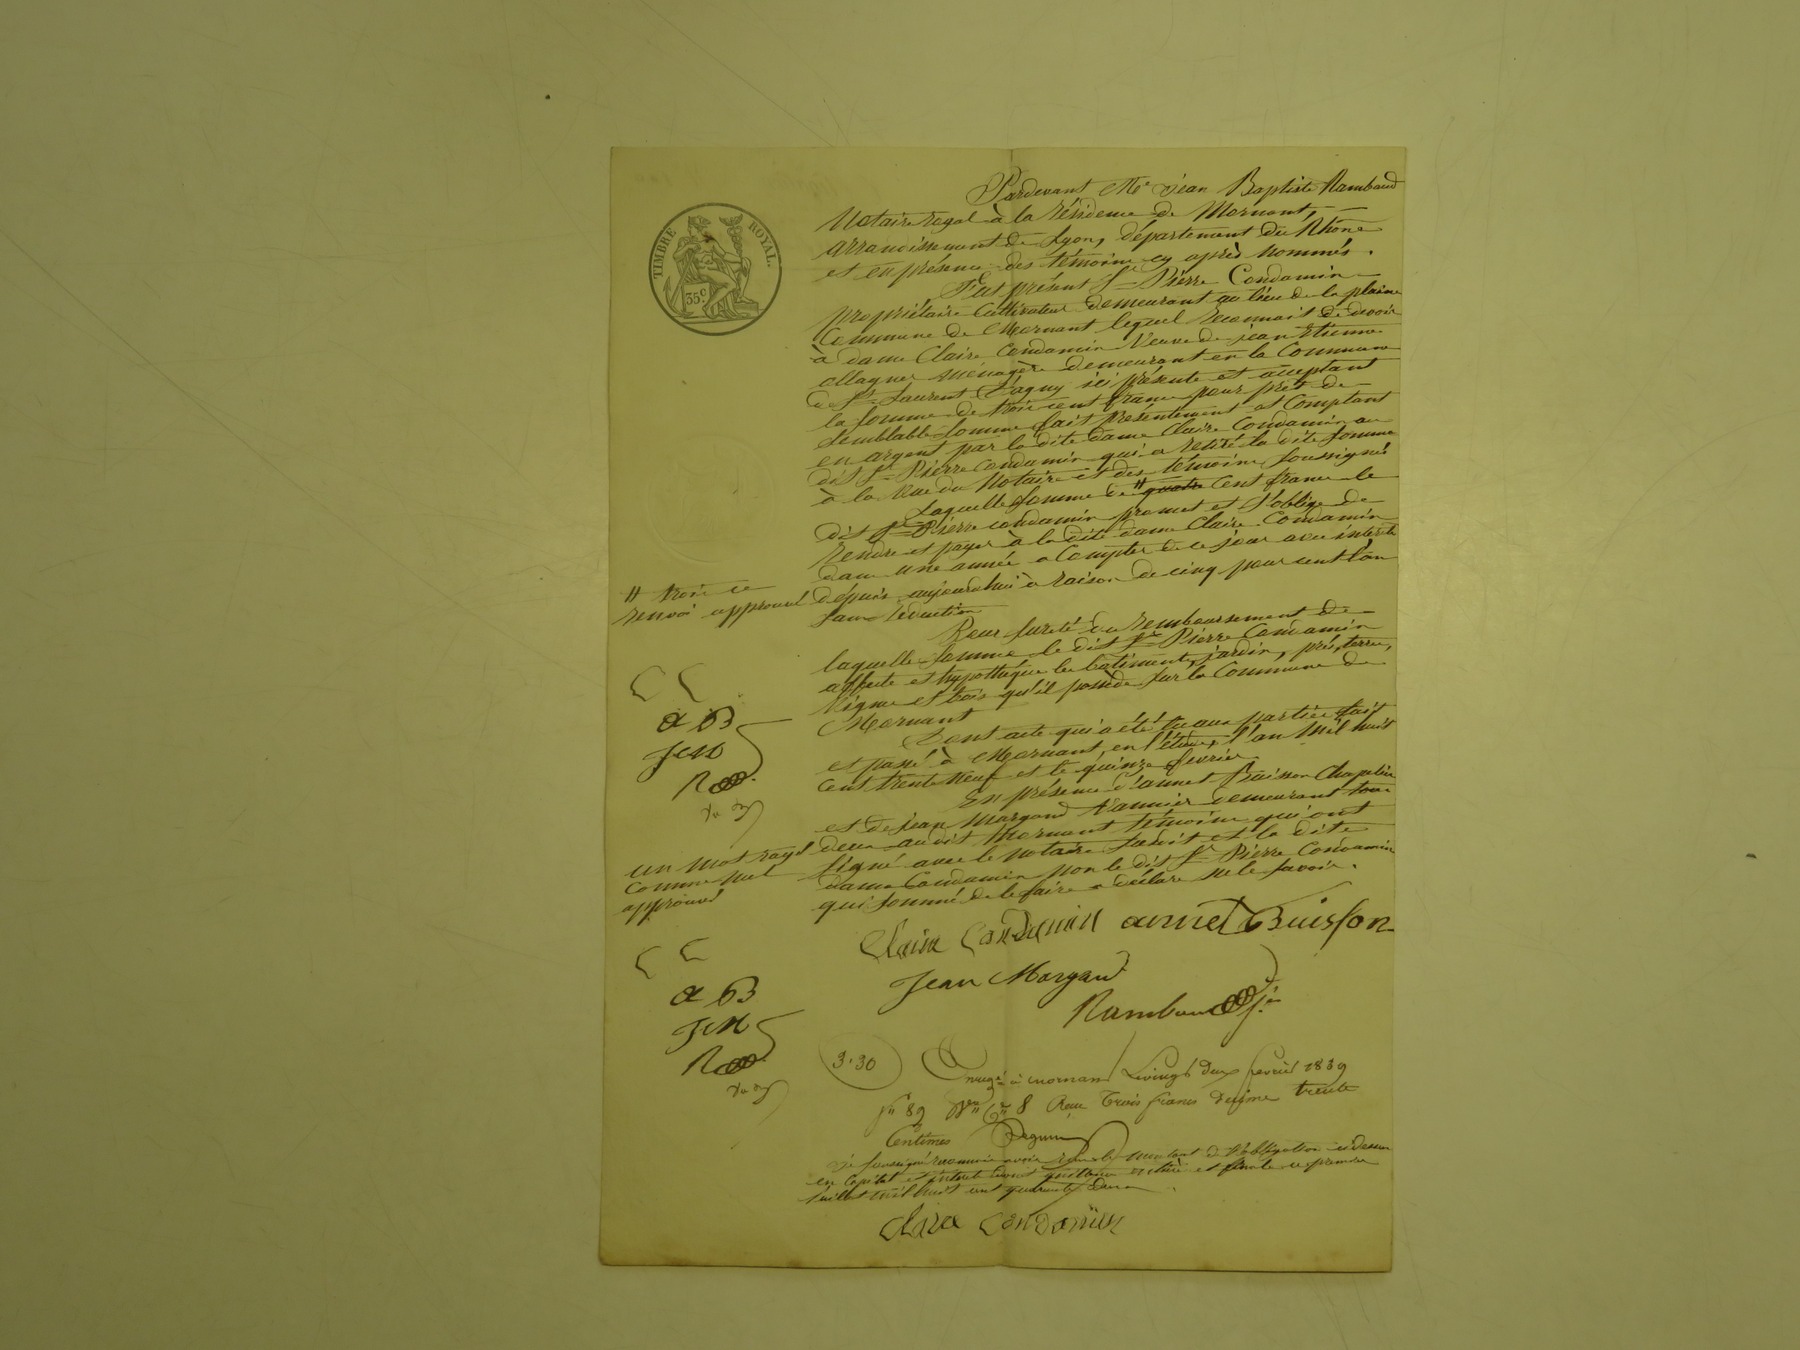 TIMBRE ROYAL.
35.c
Pardevant Me Jean Baptiste Rambaud
Notaire royal à la résidence de Mornant,
arrondissement de Lyon, département du Rhône
et en présence des témoins cy après nommés.
Fut présent Sr Pierre Condamin
propriétaire Cultivateur demeurant au lieu de la plaine
Commune de Mornant lequel reconnait de devoir
à dame Claire Condamin Veuve de jean Etienne
allagnes ménagère demeurant en la Commune
de St Laurent D'agny ici présente et acceptant
la somme de trois cent francs pour prêt de
semblable somme fait présentement et Comptant
en argent par la dite dame Claire Condamin au
dit Sr Pierre Condamin qui a retiré la dite somme
à la vue du Notaire et des témoins soussignés
Laquelle somme de # quatre Cent francs le
dit Sr Pierre Condamin promet et s'oblige de
rendre et payer à la dite dame Claire Condamin
dans une année a Compter de ce jour avec intérêts
# trois ce
renvoi approuvé
depuis aujourdhui à raison de cinq pour cent l'an
sans déduction
Pour sureté du remboursement de
laquelle somme le dit Sr Pierre Condamin
affecte et hypothéque les bâtiments, jardin, prés, terres,
vignes et bois qu'il possède sur la Commune de
Mornant
C C
a B
JCM
R
Dont acte qui a été lu aux parties fait
et passé à Mornant, en l'étude, l'an Mil huit
cent trente neuf et le quinze fevrier
En présence d'annet Buisson Chapelier
et de jean Margand Vannier demeurant tous
deux au dit Mornant témoins qui ont
signé avec le notaire susdit et la dite
dame Condamin non le dit Sr Pierre Condamin
qui sommé de le faire a déclaré ne le savoir.
un mot rayé
comme nul
approuvé
Claire Condamin annet Buisson
Jean Margand
Rambaud
C C
a B
JCM
R
3.30
Enregé à Mornant le vingt deux fevrier 1839
fo 89 Vo Ce 8 Reçu Trois francs decime trente
Centimes
Je soussigné reconnais avoir reçu le montant de l'obligation ci dessus
en capital et intérêts dont quittance entière et finale ce premier
juillet mil huit cent quarante deux.
Claire Condamin